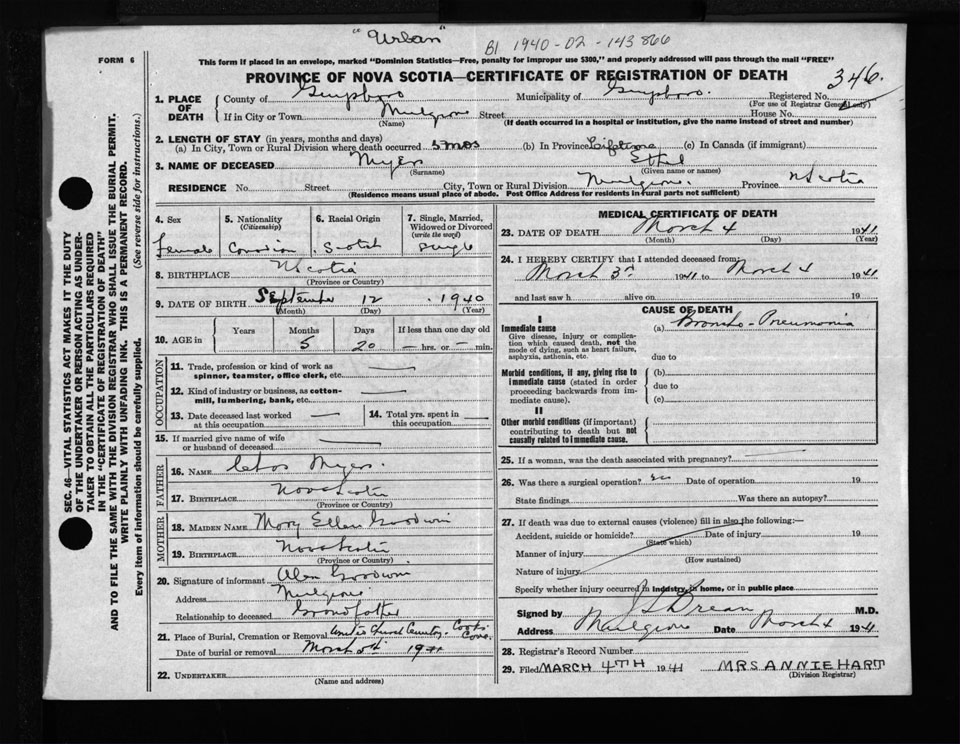 "Urban"
B1 1940-02-143866
346.
FORM 6
This form if placed in an envelope, marked "Dominion Statistics—Free, penalty for improper use $300," and properly addressed will pass through the mail "FREE"
PROVINCE OF NOVA SCOTIA—CERTIFICATE OF REGISTRATION OF DEATH
SEC. 46—VITAL STATISTICS ACT MAKES IT THE DUTY
OF THE UNDERTAKER OR PERSON ACTING AS UNDER-
TAKER TO OBTAIN ALL THE PARTICULARS REQUIRED
IN THE "CERTIFICATE OF REGISTRATION OF DEATH"
AND TO FILE THE SAME WITH THE DIVISION REGISTRAR WHO SHALL ISSUE THE BURIAL PERMIT.
WRITE PLAINLY WITH UNFADING INK. THIS IS A PERMANENT RECORD.
Every item of information should be carefully supplied. (See reverse side for instructions.)
1. PLACE OF DEATH
County of Guysboro Municipality of Guysboro. Registered No.
(For use of Registrar General only)
If in City or Town Mulgrave Street House No.
(Name) (If death occurred in a hospital or institution, give the name instead of street and number)
2. LENGTH OF STAY (in years, months and days)
(a) In City, Town or Rural Division where death occurred 5 mos (b) In Province Lifetime (c) In Canada (if immigrant)
3. NAME OF DECEASED Myers Ethel
(Surname) (Given name or names)
RESIDENCE No. Street City, Town or Rural Division Mulgrave. Province N Scotia
(Residence means usual place of abode. Post Office Address for residents in rural parts not sufficient)
4. Sex Female
5. Nationality (Citizenship) Canadian
6. Racial Origin Scotch
7. Single, Married, Widowed or Divorced (write the word) Single
8. BIRTHPLACE N Scotia
(Province or Country)
9. DATE OF BIRTH September 12 1940
(Month) (Day) (Year)
10. AGE in Years Months 5 Days 20 If less than one day old — hrs. or — min.
OCCUPATION
11. Trade, profession or kind of work as
spinner, teamster, office clerk, etc. —
12. Kind of industry or business, as cotton-
mill, lumbering, bank, etc. —
13. Date deceased last worked at this occupation —
14. Total yrs. spent in this occupation —
15. If married give name of wife
or husband of deceased —
FATHER
16. NAME Chas Myers.
17. BIRTHPLACE Nova Scotia
(Province or Country)
MOTHER
18. MAIDEN NAME Mary Ellen Goodwin
19. BIRTHPLACE Nova Scotia
(Province or Country)
20. Signature of informant Alen Goodwin
Address Mulgrave
Relationship to deceased Grandfather
21. Place of Burial, Cremation or Removal United Church Cemetery. Cooks Cove.
Date of burial or removal March 5th 1941
22. UNDERTAKER
(Name and address)
MEDICAL CERTIFICATE OF DEATH
23. DATE OF DEATH March 4 1941
(Month) (Day) (Year)
24. I HEREBY CERTIFY that I attended deceased from:
March 3rd 1941 to March 4 1941
and last saw h alive on 19
CAUSE OF DEATH
I
Immediate cause (a) Broncho-Pneumonia
Give disease, injury or complica-
tion which caused death, not the
mode of dying, such as heart failure,
asphyxia, asthenia, etc.
due to
Morbid conditions, if any, giving rise to
immediate cause (stated in order
proceeding backwards from im-
mediate cause).
(b)
due to
(c)
II
Other morbid conditions (if important)
contributing to death but not
causally related to immediate cause.
25. If a woman, was the death associated with pregnancy?
26. Was there a surgical operation? Date of operation 19
State findings Was there an autopsy?
27. If death was due to external causes (violence) fill in also the following:—
Accident, suicide or homicide? Date of injury 19
(State which)
Manner of injury
(How sustained)
Nature of injury
Specify whether injury occurred in industry, in home, or in public place
Signed by M.D.
Address Mulgrave Date March 4 1941
28. Registrar's Record Number
29. Filed MARCH 4TH 1941 MRS ANNIE HART
(Division Registrar)